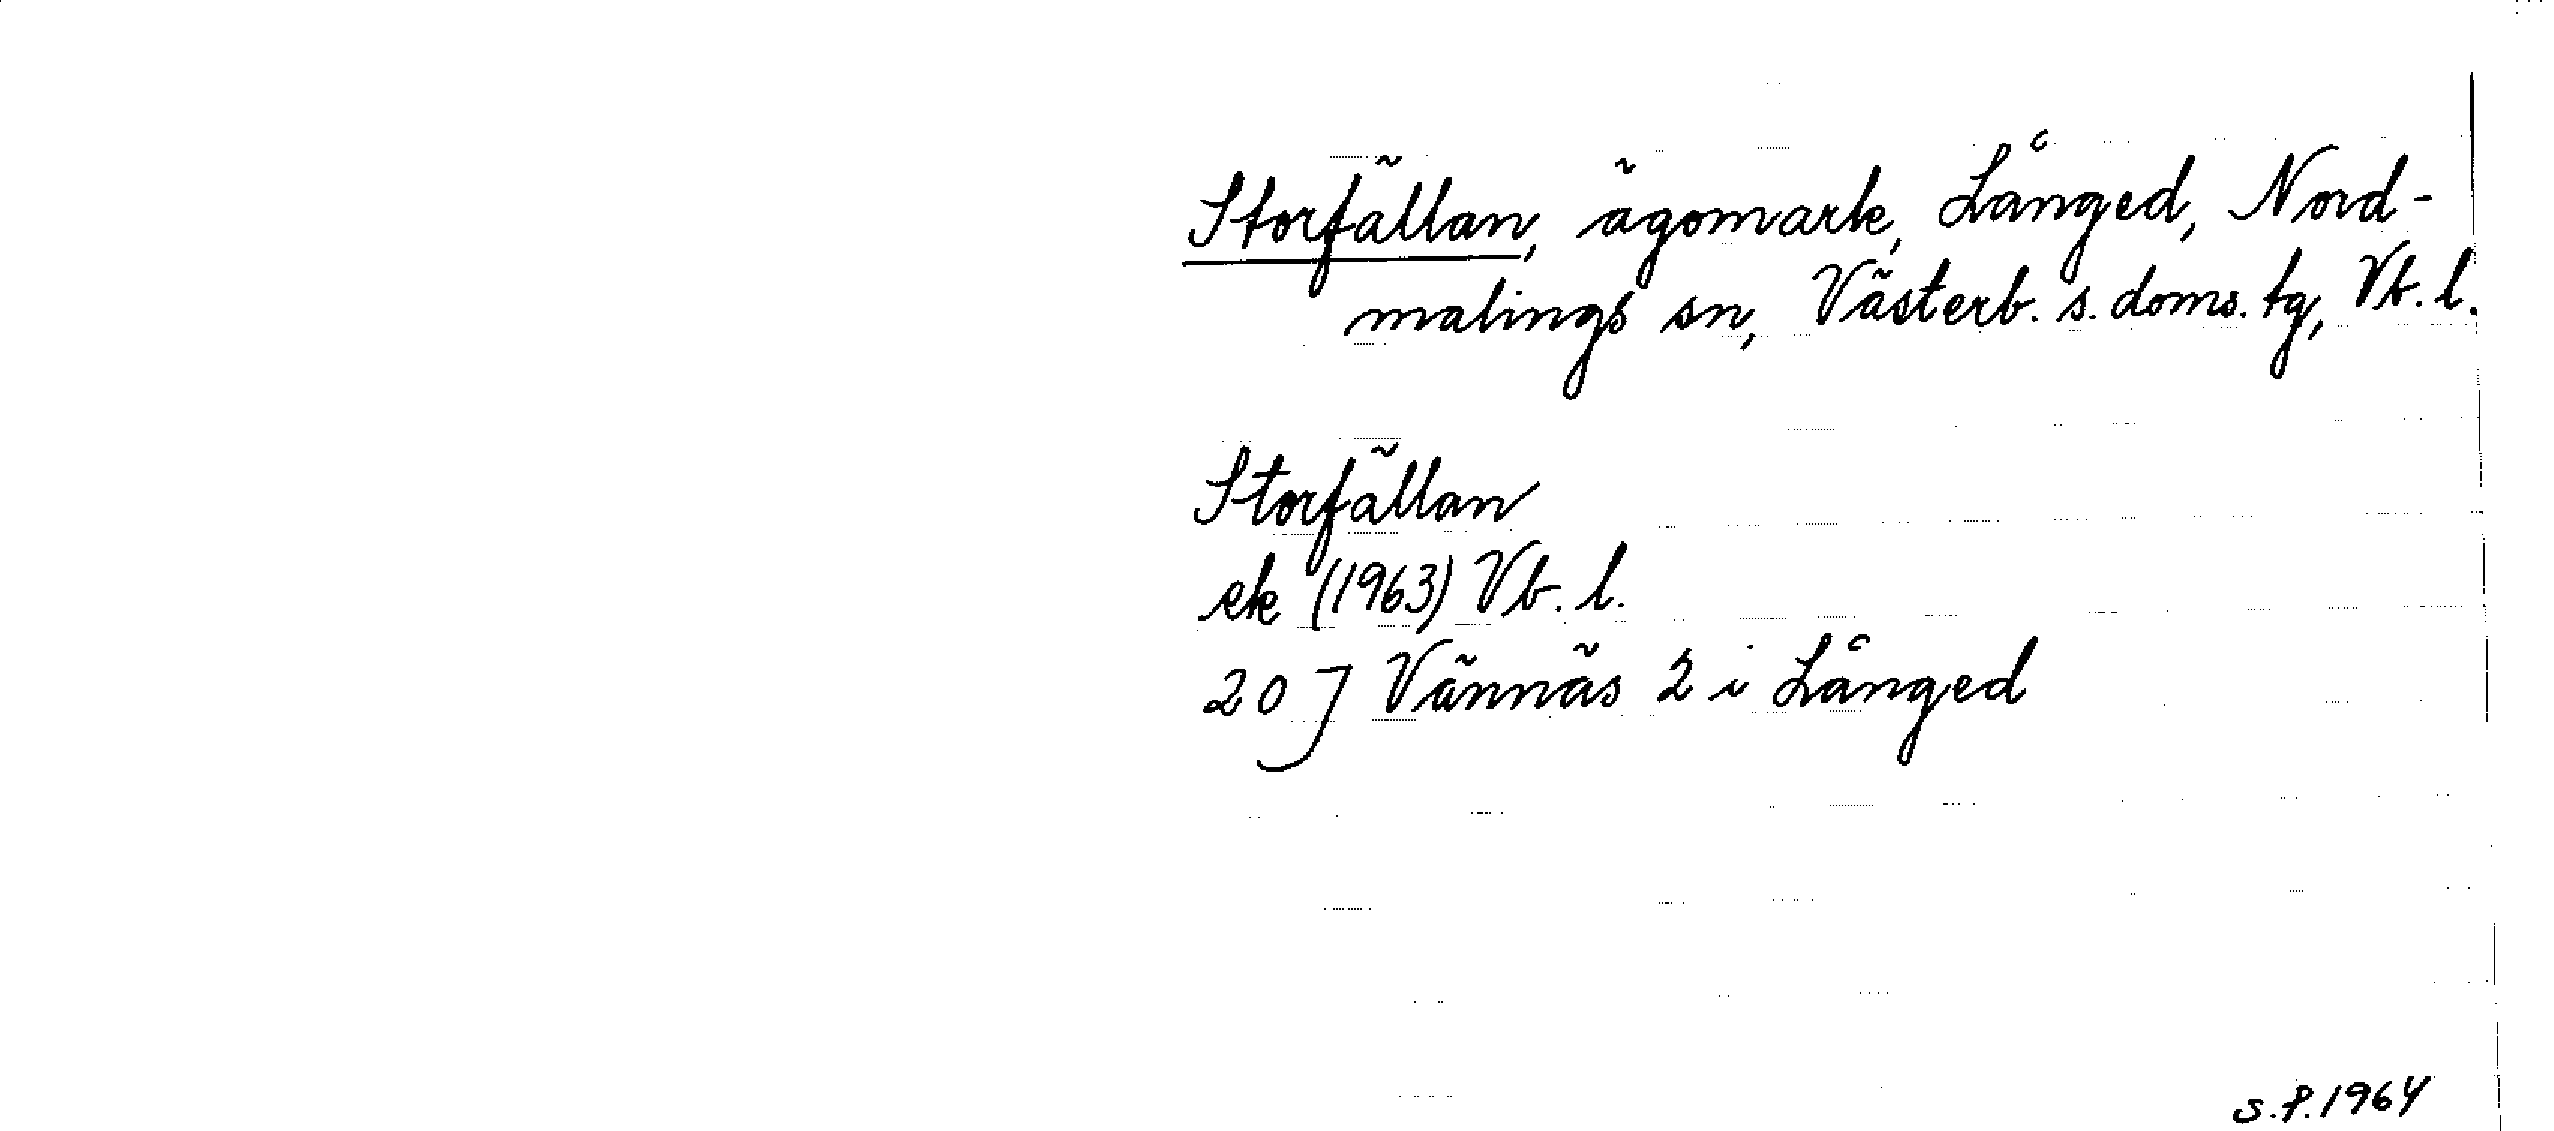 Storfällan, ägomark, Långed, Nord-
malings sn, Västerb. s. doms. tg, Vb. l.
Storfällan
ek (1963) Vb. l.
20 J Vännäs 2 i Långed
S.F. 1964